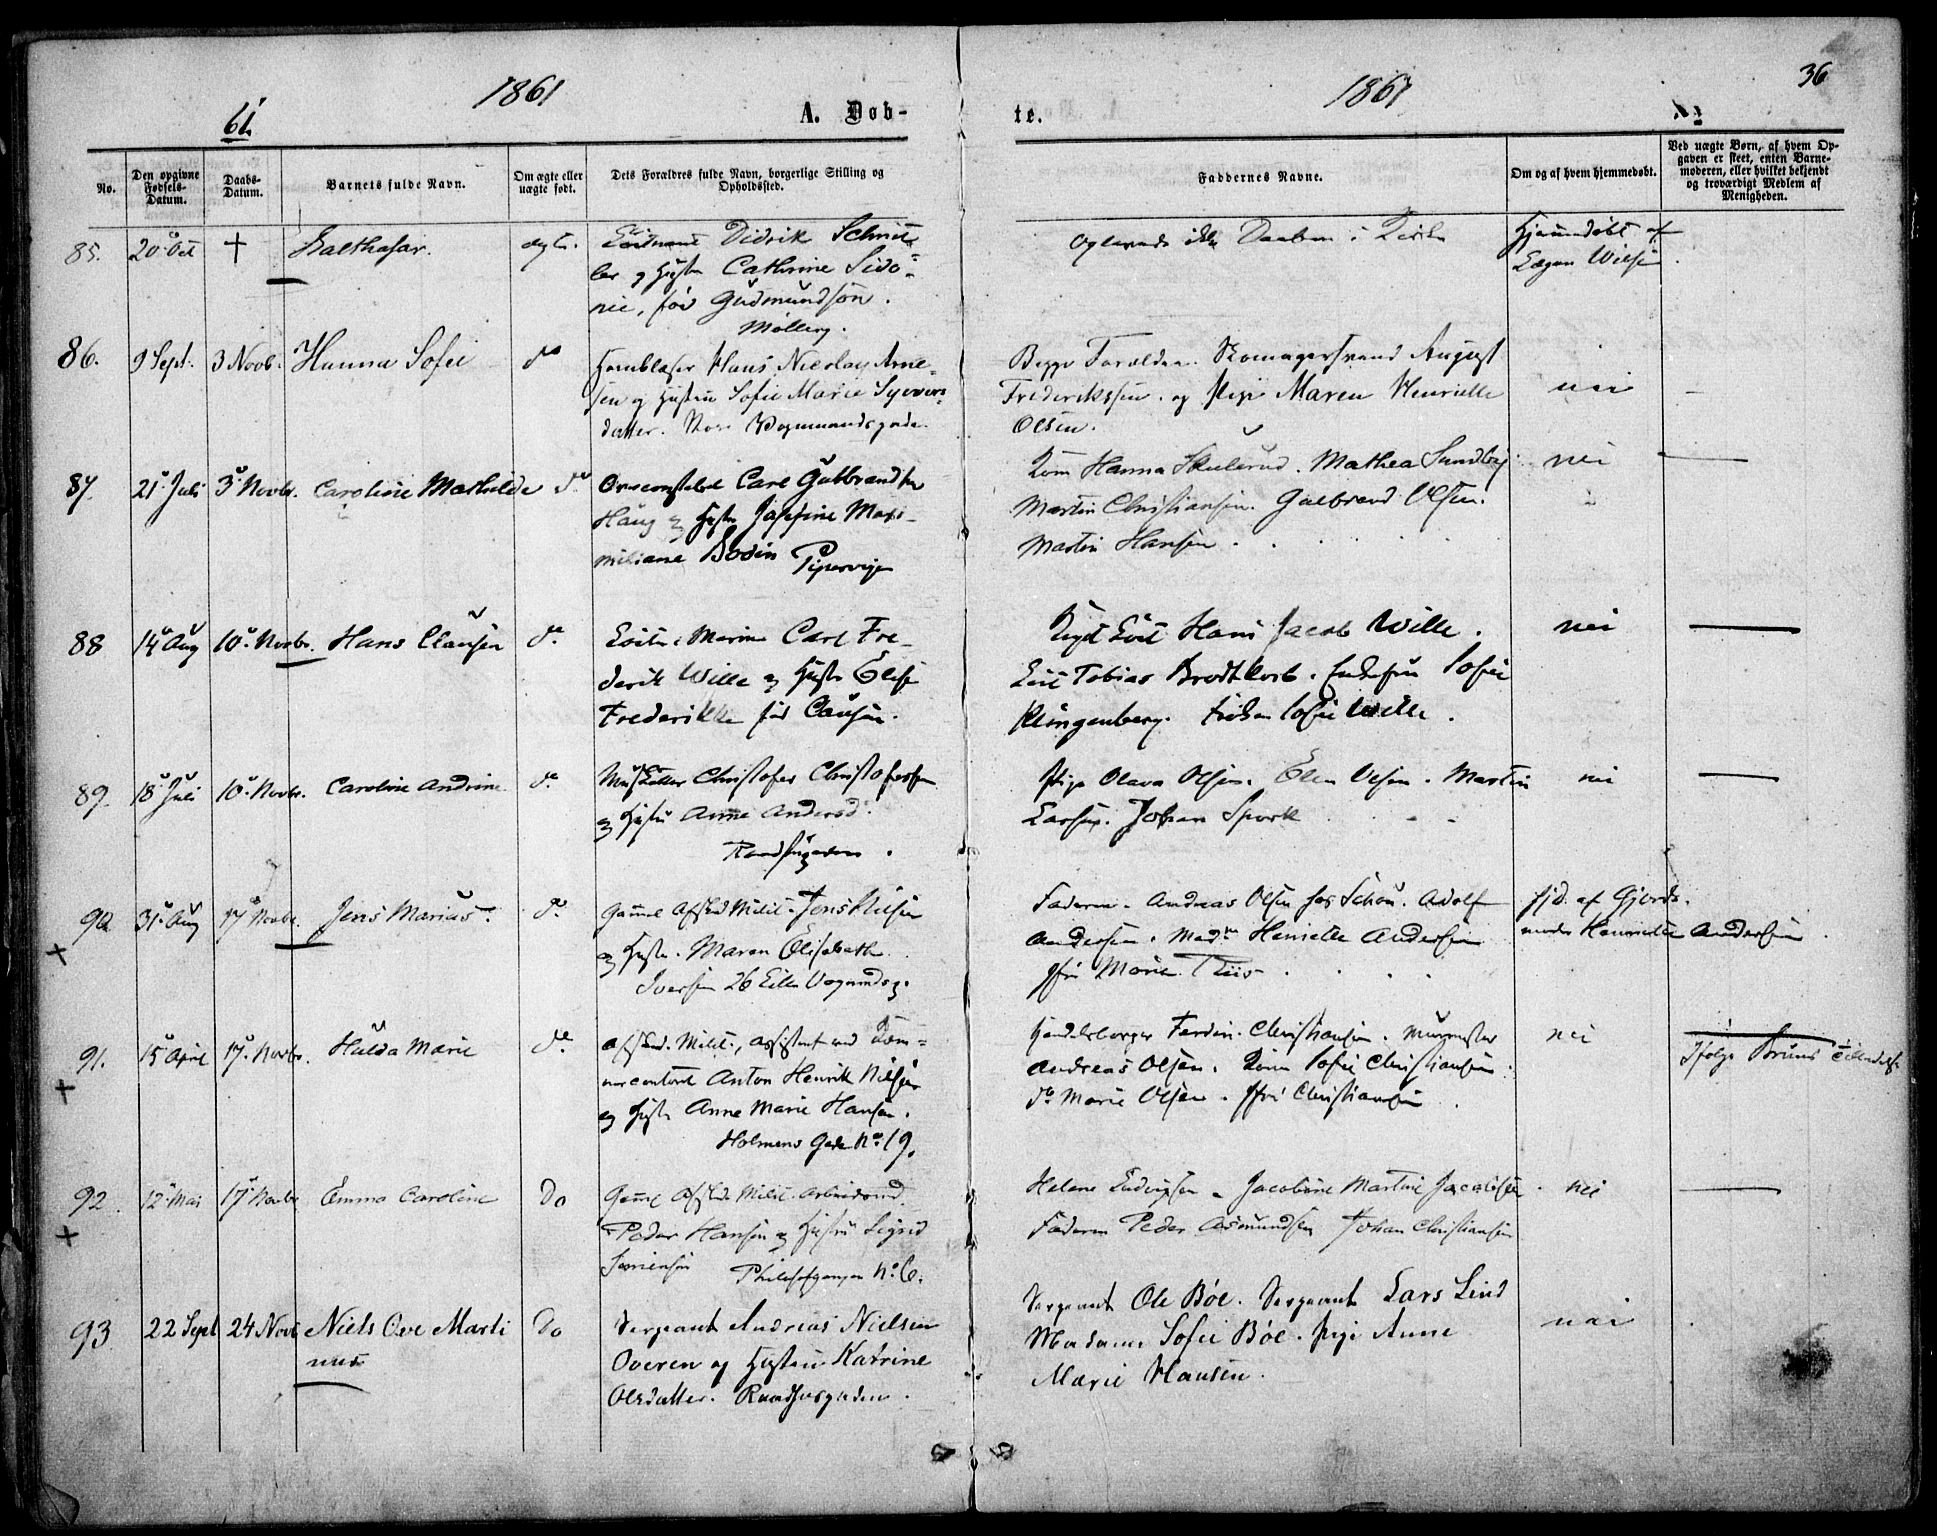 1861
1861
36
61.
A. Døb-
te.
No.
Den opgivne Fødsels-Datum.
Daabs-Datum.
Barnets fulde Navn.
Om ægte eller uægte født.
Dets Forældres fulde Navn, borgerlige Stilling og Opholdssted.
Faddernes Navne.
Om og af hvem hjemmedøbt.
Ved uægte Børn, af hvem Op-
gaven er skeet, enten Barne-
moderen, eller hvilket bekjendt
og troværdigt Medlem af
Menigheden.
85. 20 Oct + Balthasar. ægte. Didrik Schnit
ler og Hustru Cathrine Sido-
nie, fød Gudmundson.
Møllerg.
Oplevede ikke Daaben i Kirken
Hjemmedøbt af
Lægen
86. 9 Sept. 3 Novb. Hanna Sofie do Hornblæser Hans Nicolay Arne-
sen og Hustru Sofie Marie Syvers-
datter. Vognmandsgade.
Begge Forældre. Skomagersvend August
Frederikssen og Pige Maren Henriette
Olsen.
nei
87. 21 Juli 3 Novbr. Caroline Mathilde do Carl Gulbrandsen
Haug og Hustr Josefine Maxi-
miliane Bodin Pipervigen
Kone Hanna Skulerud. Mathea Sundby.
Martin Christiansen. Gulbrand Olsen.
Martin Hansen
nei
88 14 Aug 10 Novbr. Hans Clausen do. Marin Carl Fre-
derik Wille og Hustr Elise
Frederikke fød Clausen.
Hans Jacob Wille.
Tobias Brodtkorb. Sofie
Klingenberg. Frøken Sofie Wille.
nei
89. 18 Juli 10 Novbr. Caroline Andrine do. Musketer Christofer Christofersen
og Hustru Anne Andersd.
Raadhusgaden.
Pige Olava Olsen. Elen Olsen. Martin
Larsen. Johan Spork
nei
90 31 Aug 17 Novbr. Jens Marius. do. Gamel Afsked Milit. Jens Nilsen
og Hustr. Maren Elisabeth
Iversen 26 Lille Vognmdsg.
Faderen. Andreas Olsen hos Schou. Adolf
Andersen. Madm Henriette Andersen
Jfr Marie Riis
Hjd. af Gjords.
moder Henriette Andersen.
+
91. 15 April 17 Novbr. Hulda Marie do. Afsked. Milit., Assistent ved
Anton Henrik Nilsen
og Hustr Anne Marie Hansen.
Holmens Gade No 19.
Handelsborger Ferdin. Christiansen. Murmester
Andreas Olsen. Kone Sofie Christiansen
do Marie Olsen. Jfr Christiansen
nei
Ifølge Bruuns
+
92. 12 Mai 17 Novbr Emma Caroline Do Gamel Afsked Milit. Arbeidsmd.
Peder Hansen og Hustru Sigrid
Sørensen Philosofgangen No 6.
Helene Ludvigsen. Jacobine Martine Jacobsen
Faderen Peder Asmundsen Johan Christiansen
nei
+
93 22 Sept 24 Novb Niels Ove Marti
nus
Do Sergeant Andreas Nielsen
Overen og Hustru Katrine
Olsdatter. Raadhusgaden.
Sergeant Ole Bøe. Sergeant Lars Lind
Madame Sofie Bøe. Pige Anne
Marie Hansen.
nei